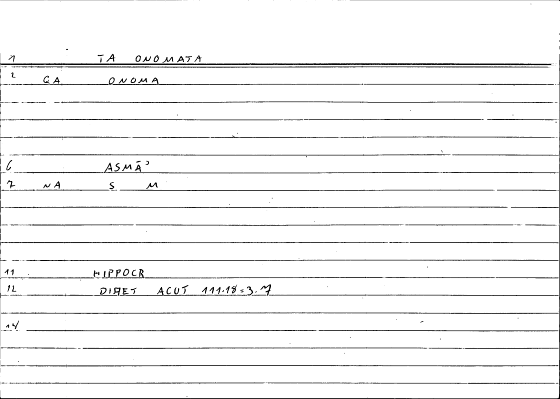 1 TA ONOMATA
2 GA ONOMA
6 ASMĀ'
7 NA S M
11 HIPPOCR
12 DIAET ACUT 111.18=3.7
14